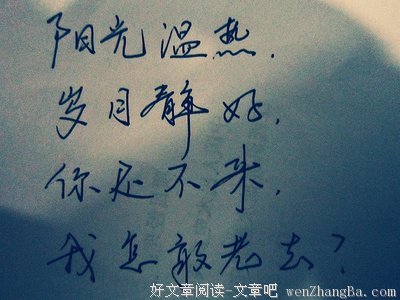 阳光温热，
岁月静好，
你还不来，
我怎敢老去？
好文章阅读-文章吧 wenZhangBa.com